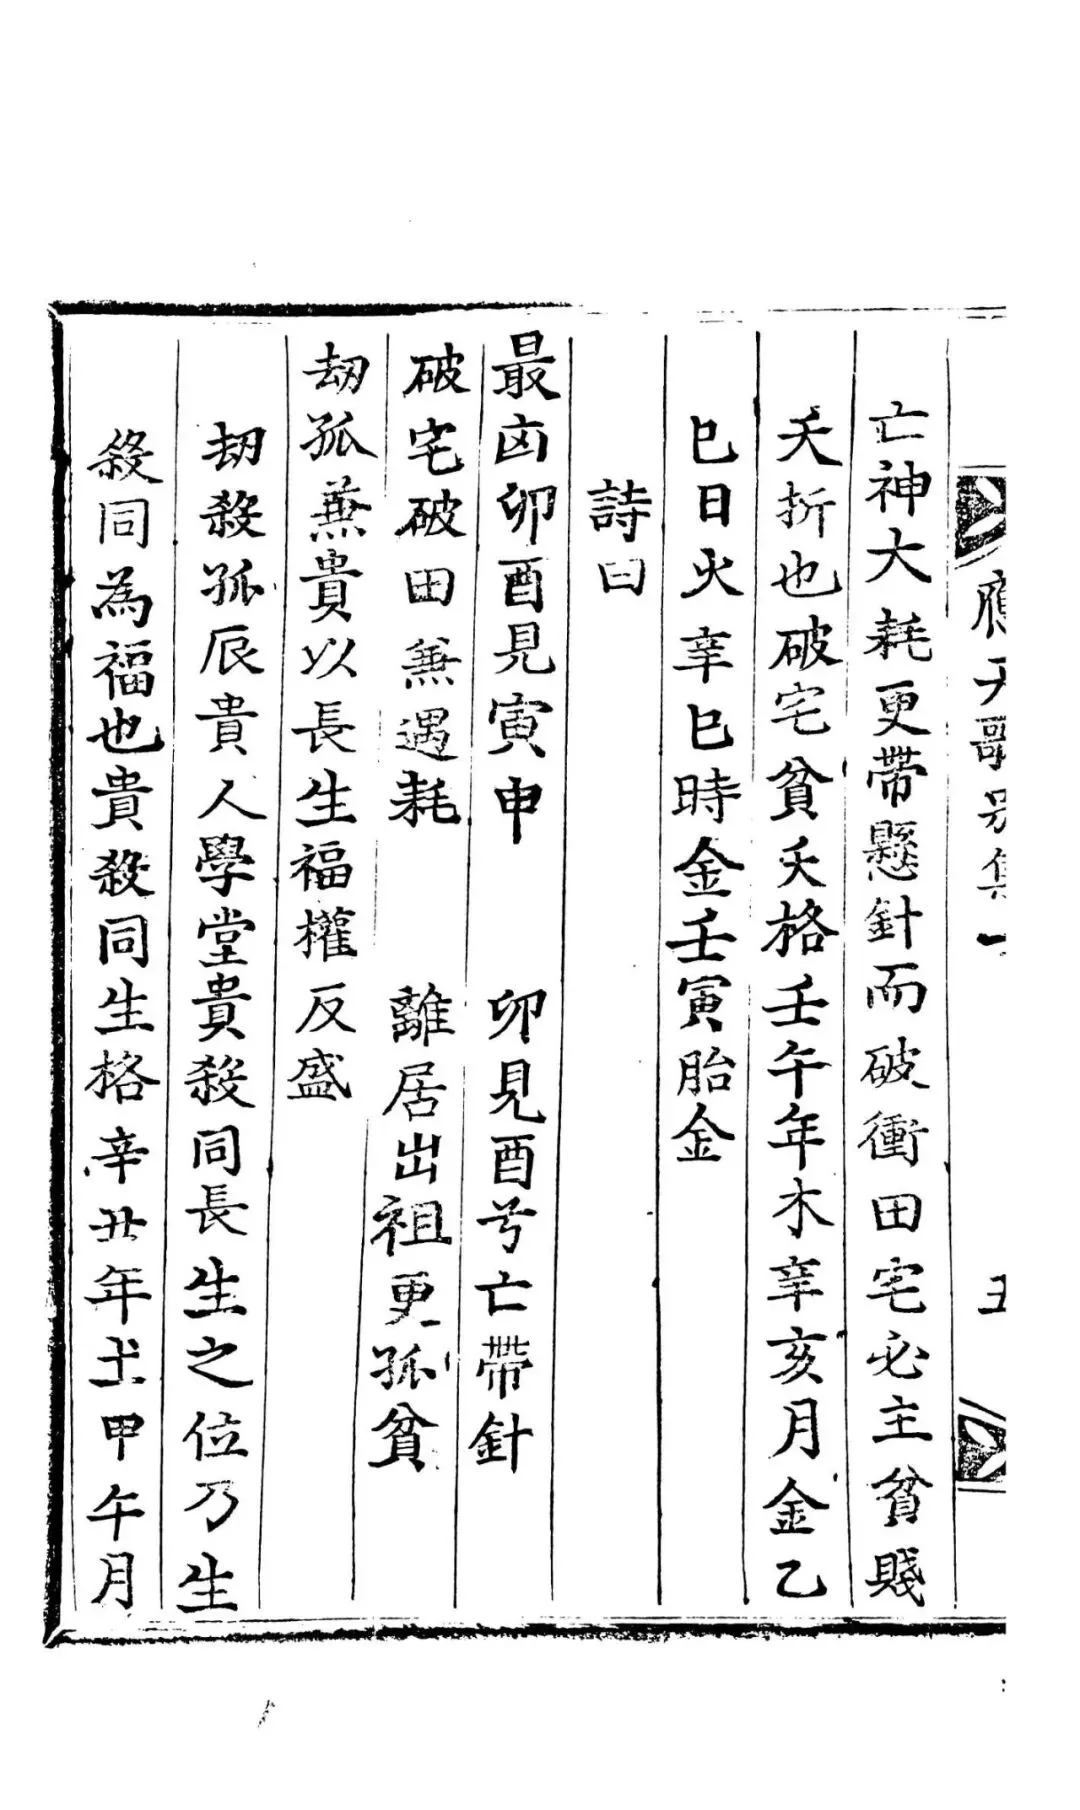 應天歌另集一 五
亡神大耗更帶懸針而破衝田宅必主貧賤
夭折也破宅貧夭格壬午年木辛亥月金乙
巳日火辛巳時金壬寅胎金
詩曰
最凶卯酉見寅申 卯見酉兮亡帶針
破宅破田兼遇耗 離居出祖更孤貧
劫孤兼貴以長生福權反盛
劫殺孤辰貴人學堂貴殺同長生之位乃生
殺同為福也貴殺同生格辛丑年土甲午月